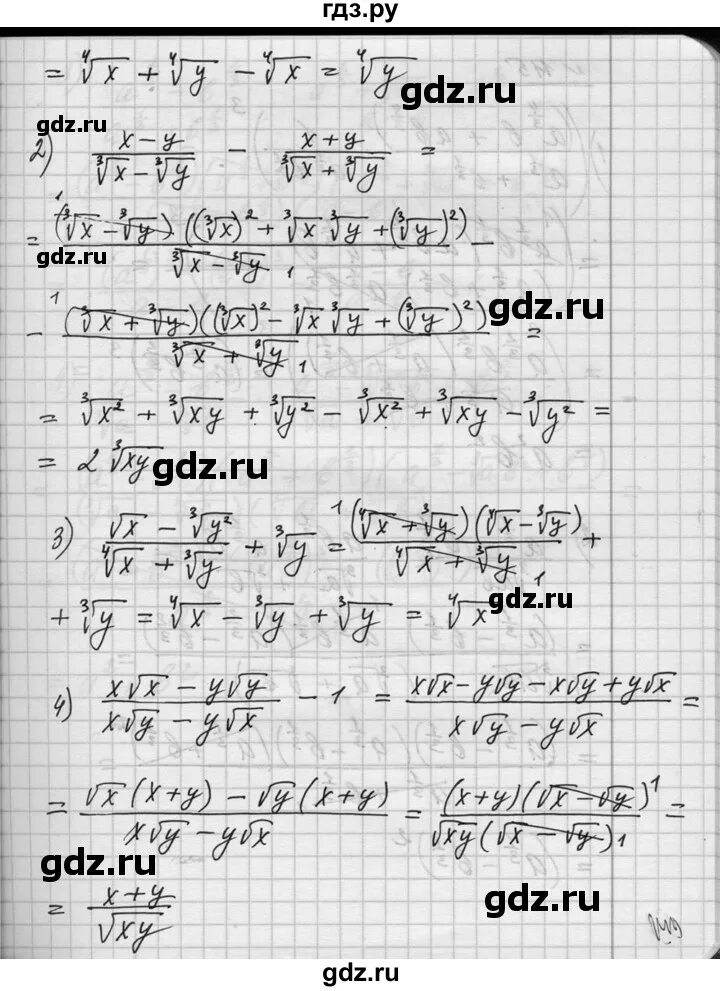 гдз.ру
= ⁴√x + ⁴√y - ⁴√x = ⁴√y
gdz.ru
gdz.ru
2) (x-y)/(³√x - ³√y) - (x+y)/(³√x + ³√y) =
= (¹(³√x - ³√y) ((³√x)² + ³√x ³√y + (³√y)²))/(³√x - ³√y 1) -
gdz.ru
gdz.ru
- (¹(³√x + ³√y)((³√x)² - ³√x ³√y + (³√y)²))/(³√x + ³√y 1) =
= ³√x² + ³√xy + ³√y² - ³√x² + ³√xy - ³√y² =
= 2 ³√xy
gdz.ru
gdz.ru
3) (√x - ³√y²)/(⁴√x + ³√y) + ³√y = (¹(⁴√x + ³√y)(⁴√x - ³√y))/(⁴√x + ³√y 1) +
+ ³√y = ⁴√x - ³√y + ³√y = ⁴√x
gdz.ru
gdz.ru
4) (x√x - y√y)/(x√y - y√x) - 1 = (x√x - y√y - x√y + y√x)/(x√y - y√x) =
= (√x (x+y) - √y (x+y))/(x√y - y√x) = ((x+y)(√x - √y)¹)/(√xy (√x - √y)1) =
gdz.ru
gdz.ru
= (x+y)/√xy
gdz.ru